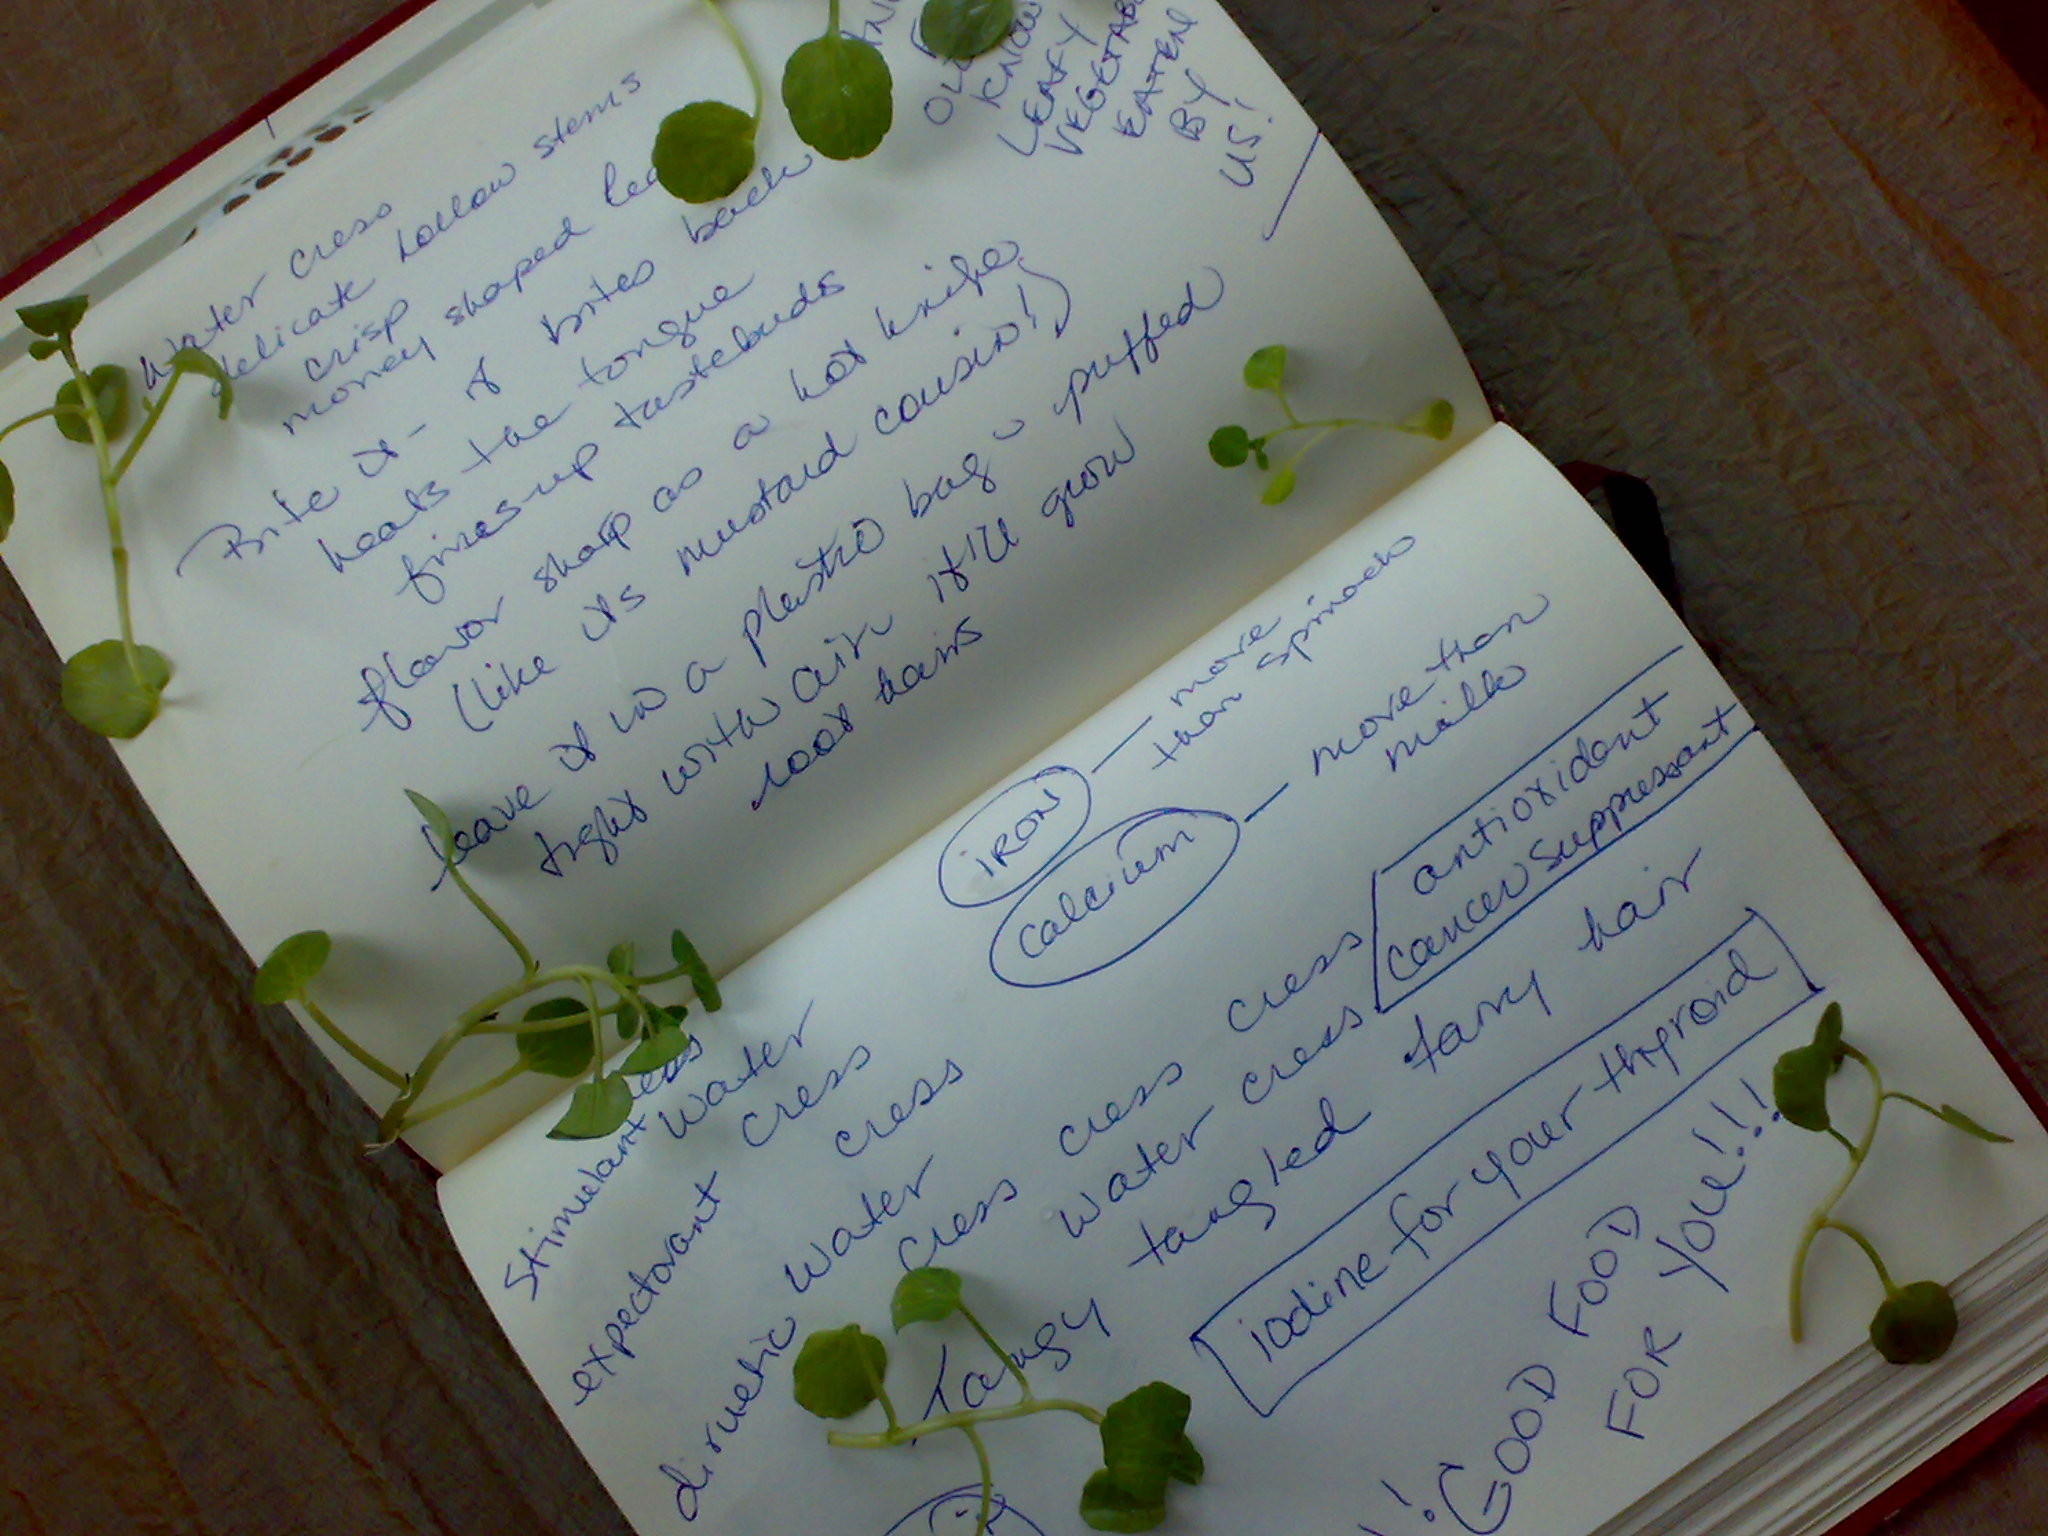 Water cress
delicate hollow stems
crisp
money shaped
Bite it - it bites back
heats the tongue
fires-up tastebuds
flavor sharp as a hot knife
(like its mustard cousin!)
leave it in a plastic bag - puffed
tight with air it'll grow
root hairs
KNOW
LEAFY
VEGETAB
EATEN
BY
US!
IRON — more
than spinach
Calcium — more than
milk
antioxidant
cancer suppressant
Stimulant water
expectorant cress
cress
diruetic water
cress cress cress
water cress
tangy tangled tarry hair
iodine for your thyroid
! GOOD FOOD
FOR YOU!!!